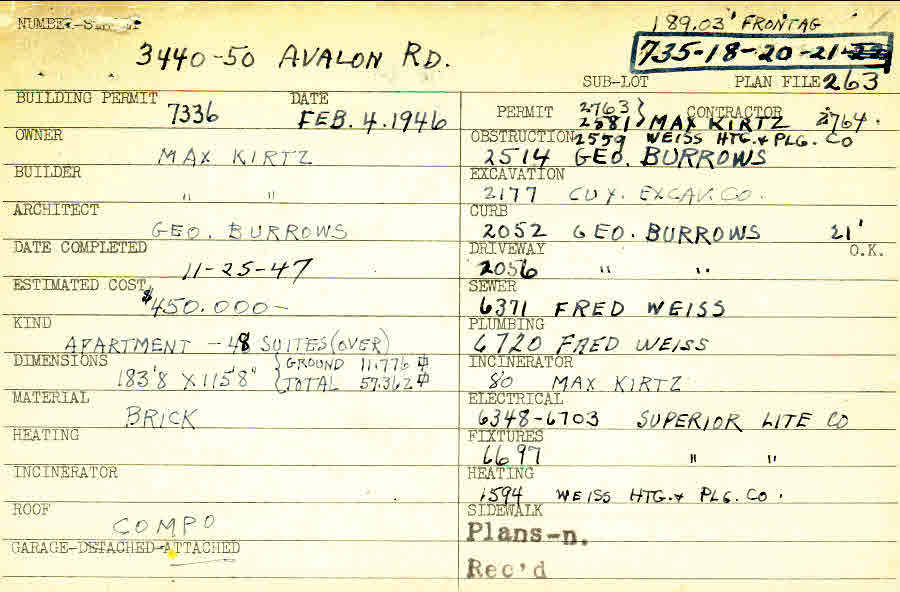 NUMBER-STREET 189.03' FRONTAG
3440-50 AVALON RD. 735-18-20-21-22
SUB-LOT PLAN FILE 263
BUILDING PERMIT DATE
7336 FEB. 4. 1946
OWNER
MAX KIRTZ
BUILDER
" "
ARCHITECT
GEO. BURROWS
DATE COMPLETED
11-25-47
ESTIMATED COST
$450.000-
KIND
APARTMENT - 48 SUITES (OVER)
DIMENSIONS { GROUND 11.776
183'8 X 115'8" { TOTAL 57.362
MATERIAL
BRICK
HEATING
INCINERATOR
ROOF
COMPO
GARAGE-DETACHED-ATTACHED
PERMIT 2763 } CONTRACTOR
2581 MAX KIRTZ 2764.
OBSTRUCTION 2559 WEISS HTG. & PLG. CO
2514 GEO. BURROWS
EXCAVATION
2177 CUY. EXCAV. CO.
CURB
2052 GEO. BURROWS 21'
DRIVEWAY O.K.
2056 " "
SEWER
6371 FRED WEISS
PLUMBING
6720 FRED WEISS
INCINERATOR
80 MAX KIRTZ
ELECTRICAL
6348-6703 SUPERIOR LITE CO
FIXTURES
6697 " "
HEATING
1594 WEISS HTG. & PLG. CO.
SIDEWALK
Plans-n.
Rec'd